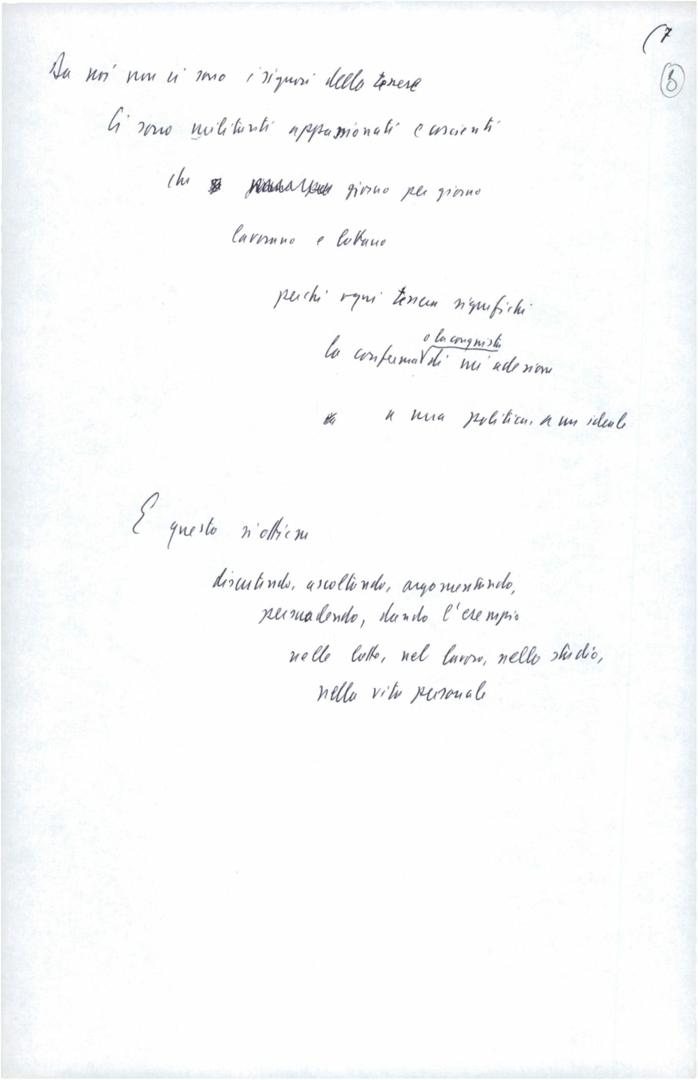 (7
8
Da noi non ci sono i signori delle tessere
Ci sono militanti appassionati e coscienti
che giorno per giorno
lavorano e lottano
perché ogni tessera significhi
la conferma o la conquista di un'adesione
a una politica, a un ideale
E questo si ottiene
discutendo, ascoltando, argomentando,
persuadendo, dando l'esempio
nelle lotte, nel lavoro, nello studio,
nella vita personale